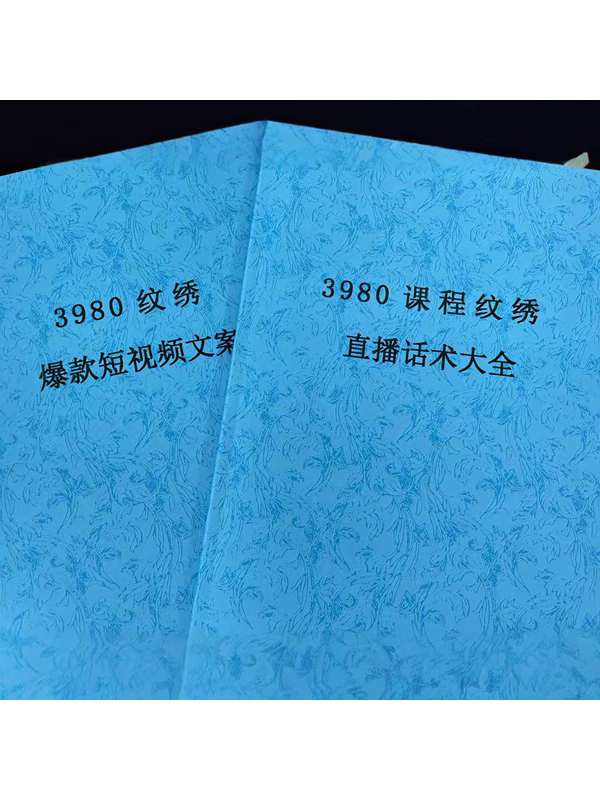 3980 纹绣
爆款短视频文案
3980 课程纹绣
直播话术大全